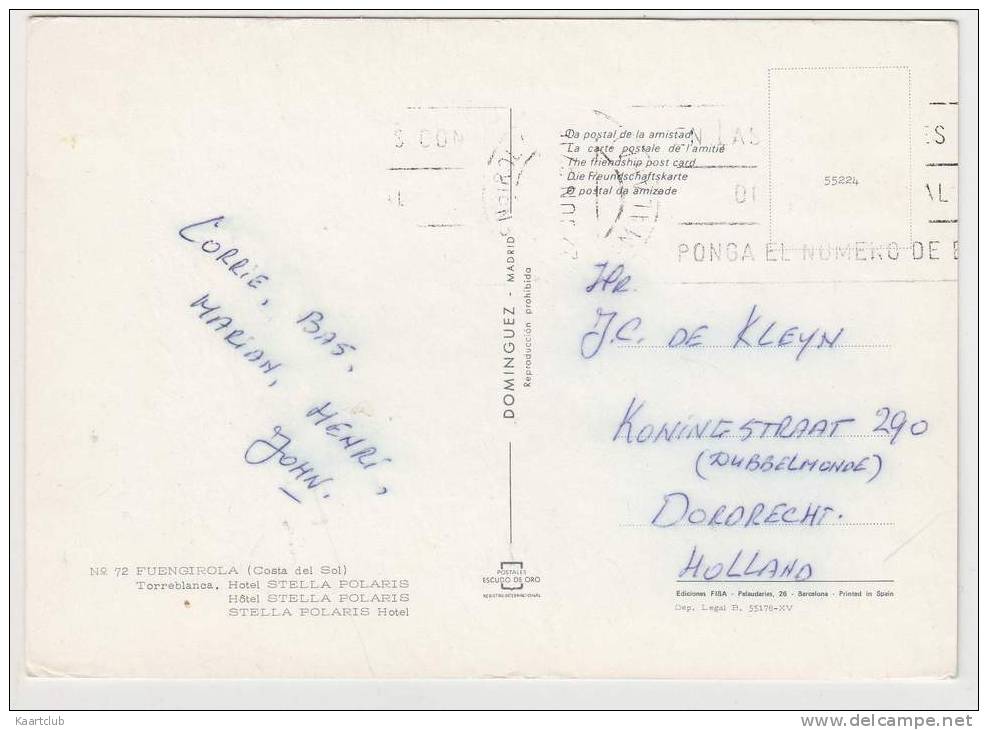 CORRIE, BAS,
MARIAN, HENRI,
JOHN.
Nº 72 FUENGIROLA (Costa del Sol)
Torreblanca. Hotel STELLA POLARIS
Hôtel STELLA POLARIS
STELLA POLARIS Hotel
DOMINGUEZ - MADRID
Reproducción prohibida
POSTALES
ESCUDO DE ORO
REGISTRO INTERNACIONAL
S CON
AL
La postal de la amistad
La carte postale de l'amitié
The friendship post card
Die Freundschaftskarte
O postal da amizade
EN LAS ES
DI AL
PONGA EL NUMERO DE
JUN
55224
Hr.
J.C. DE KLEYN
KONINGSTRAAT 290
(DUBBELMONDE)
DORDRECHT.
HOLLAND
Ediciones FISA - Palaudarias, 26 - Barcelona - Printed in Spain
Dep. Legal B. 55176-XV
Kaartclub
www.delcampe.net